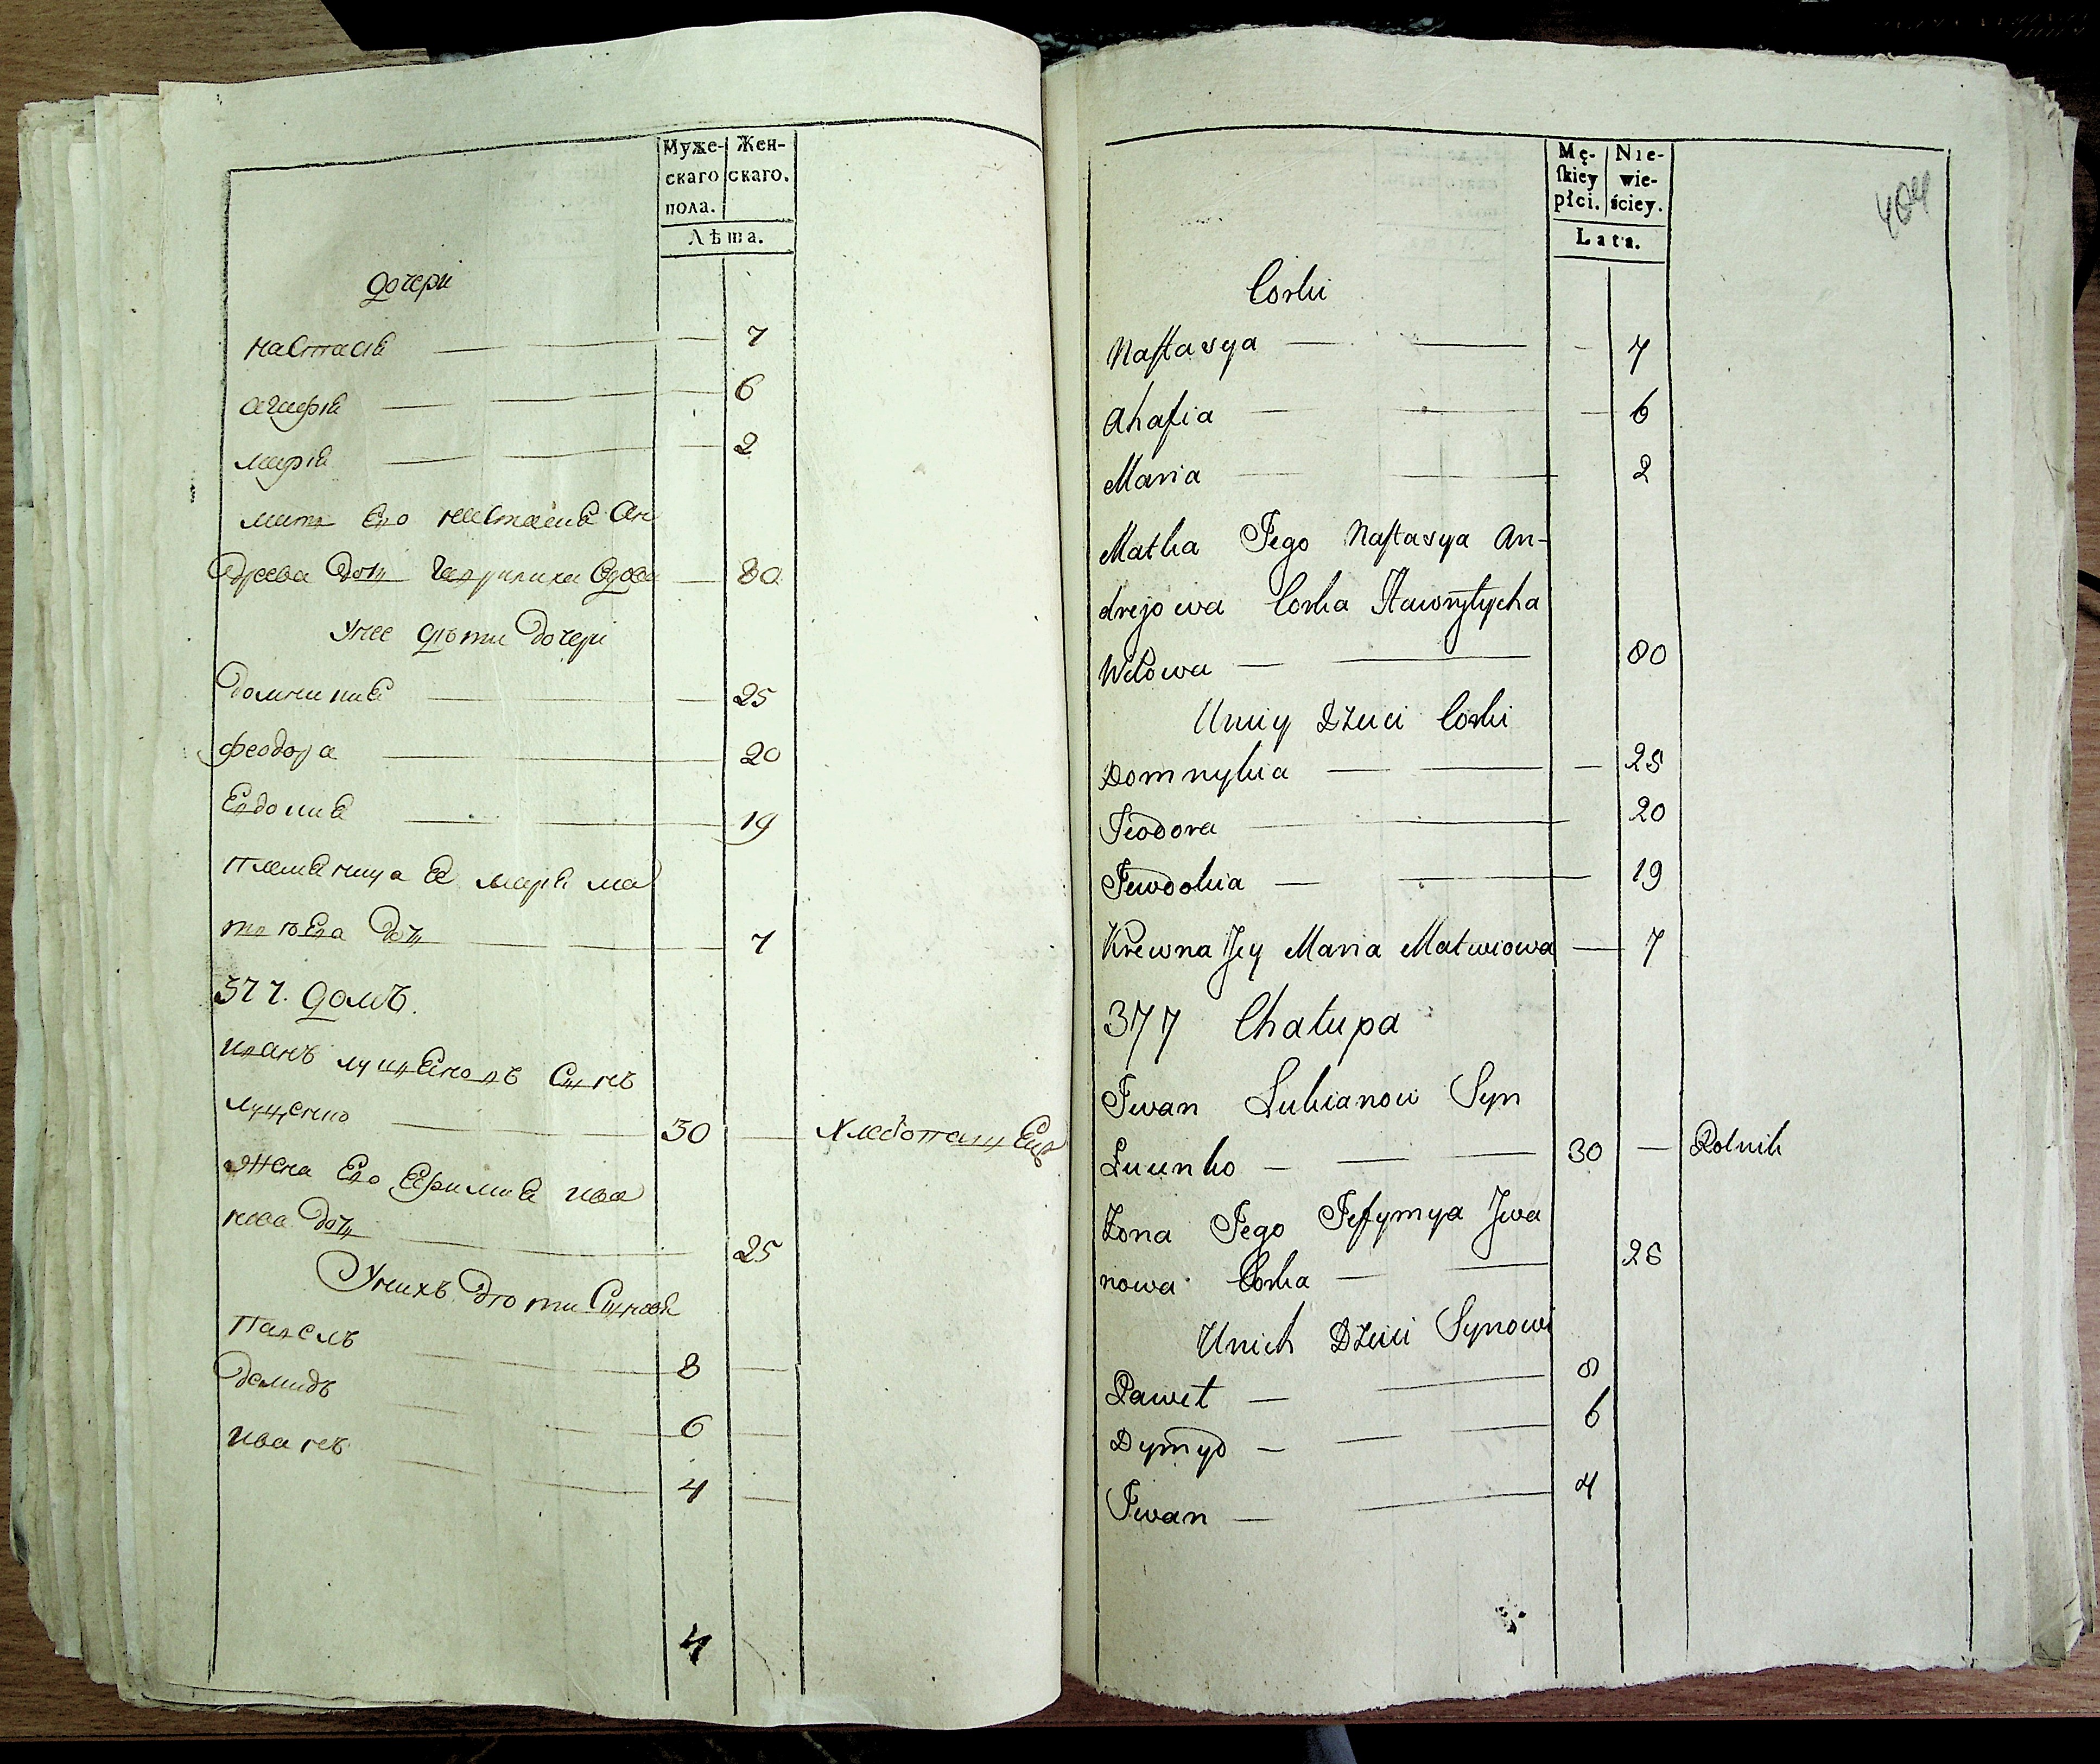 Муже-
скаго
пола.
Жен-
скаго.
Лѣта.
дочери
настасiя — 7
агафiя — 6
марiя — 2
мать Его настасiя Ан
дреева дочь Гаврилиха вдова — 80
Унее дѣти дочери
домникия — 25
феодора — 20
Евдокия — 19
племяница Ея марiя ма
твѣева дочь — 7
377. домъ.
иванъ луцяновъ Сынъ
луценко — 30 — хлебопашецъ
жена Его Ефимия ива
нова дочь — 25
Унихъ дѣти Сыновя
павелъ — 8 —
демидъ — 6 —
иванъ — 4 —
4
Mę-
ſkiey
płci.
Nie-
wie-
ściey.
Lata.
404
Corki
Naſtasya — — - 7
Ahafia — — — 6
Maria — — 2
Matka Jego Naſtasya An-
drejowa Corka Hawryłycha
Wdowa — — 80
Uniey Dzieci Corki
Domnykia — — — 25
Feodora — — 20
Jewdokia — — 19
Krewna Jey Maria Matwiowa — 7
377 Chałupa
Iwan Lukianow Syn
Lucenko — — — 30 — Rolnik
Żona Jego Jefymya Iwa
nowa Corka — — 26
Unich Dzieci Synowi
Paweł — — 8
Dymyd — — — 6
Iwan — — 4